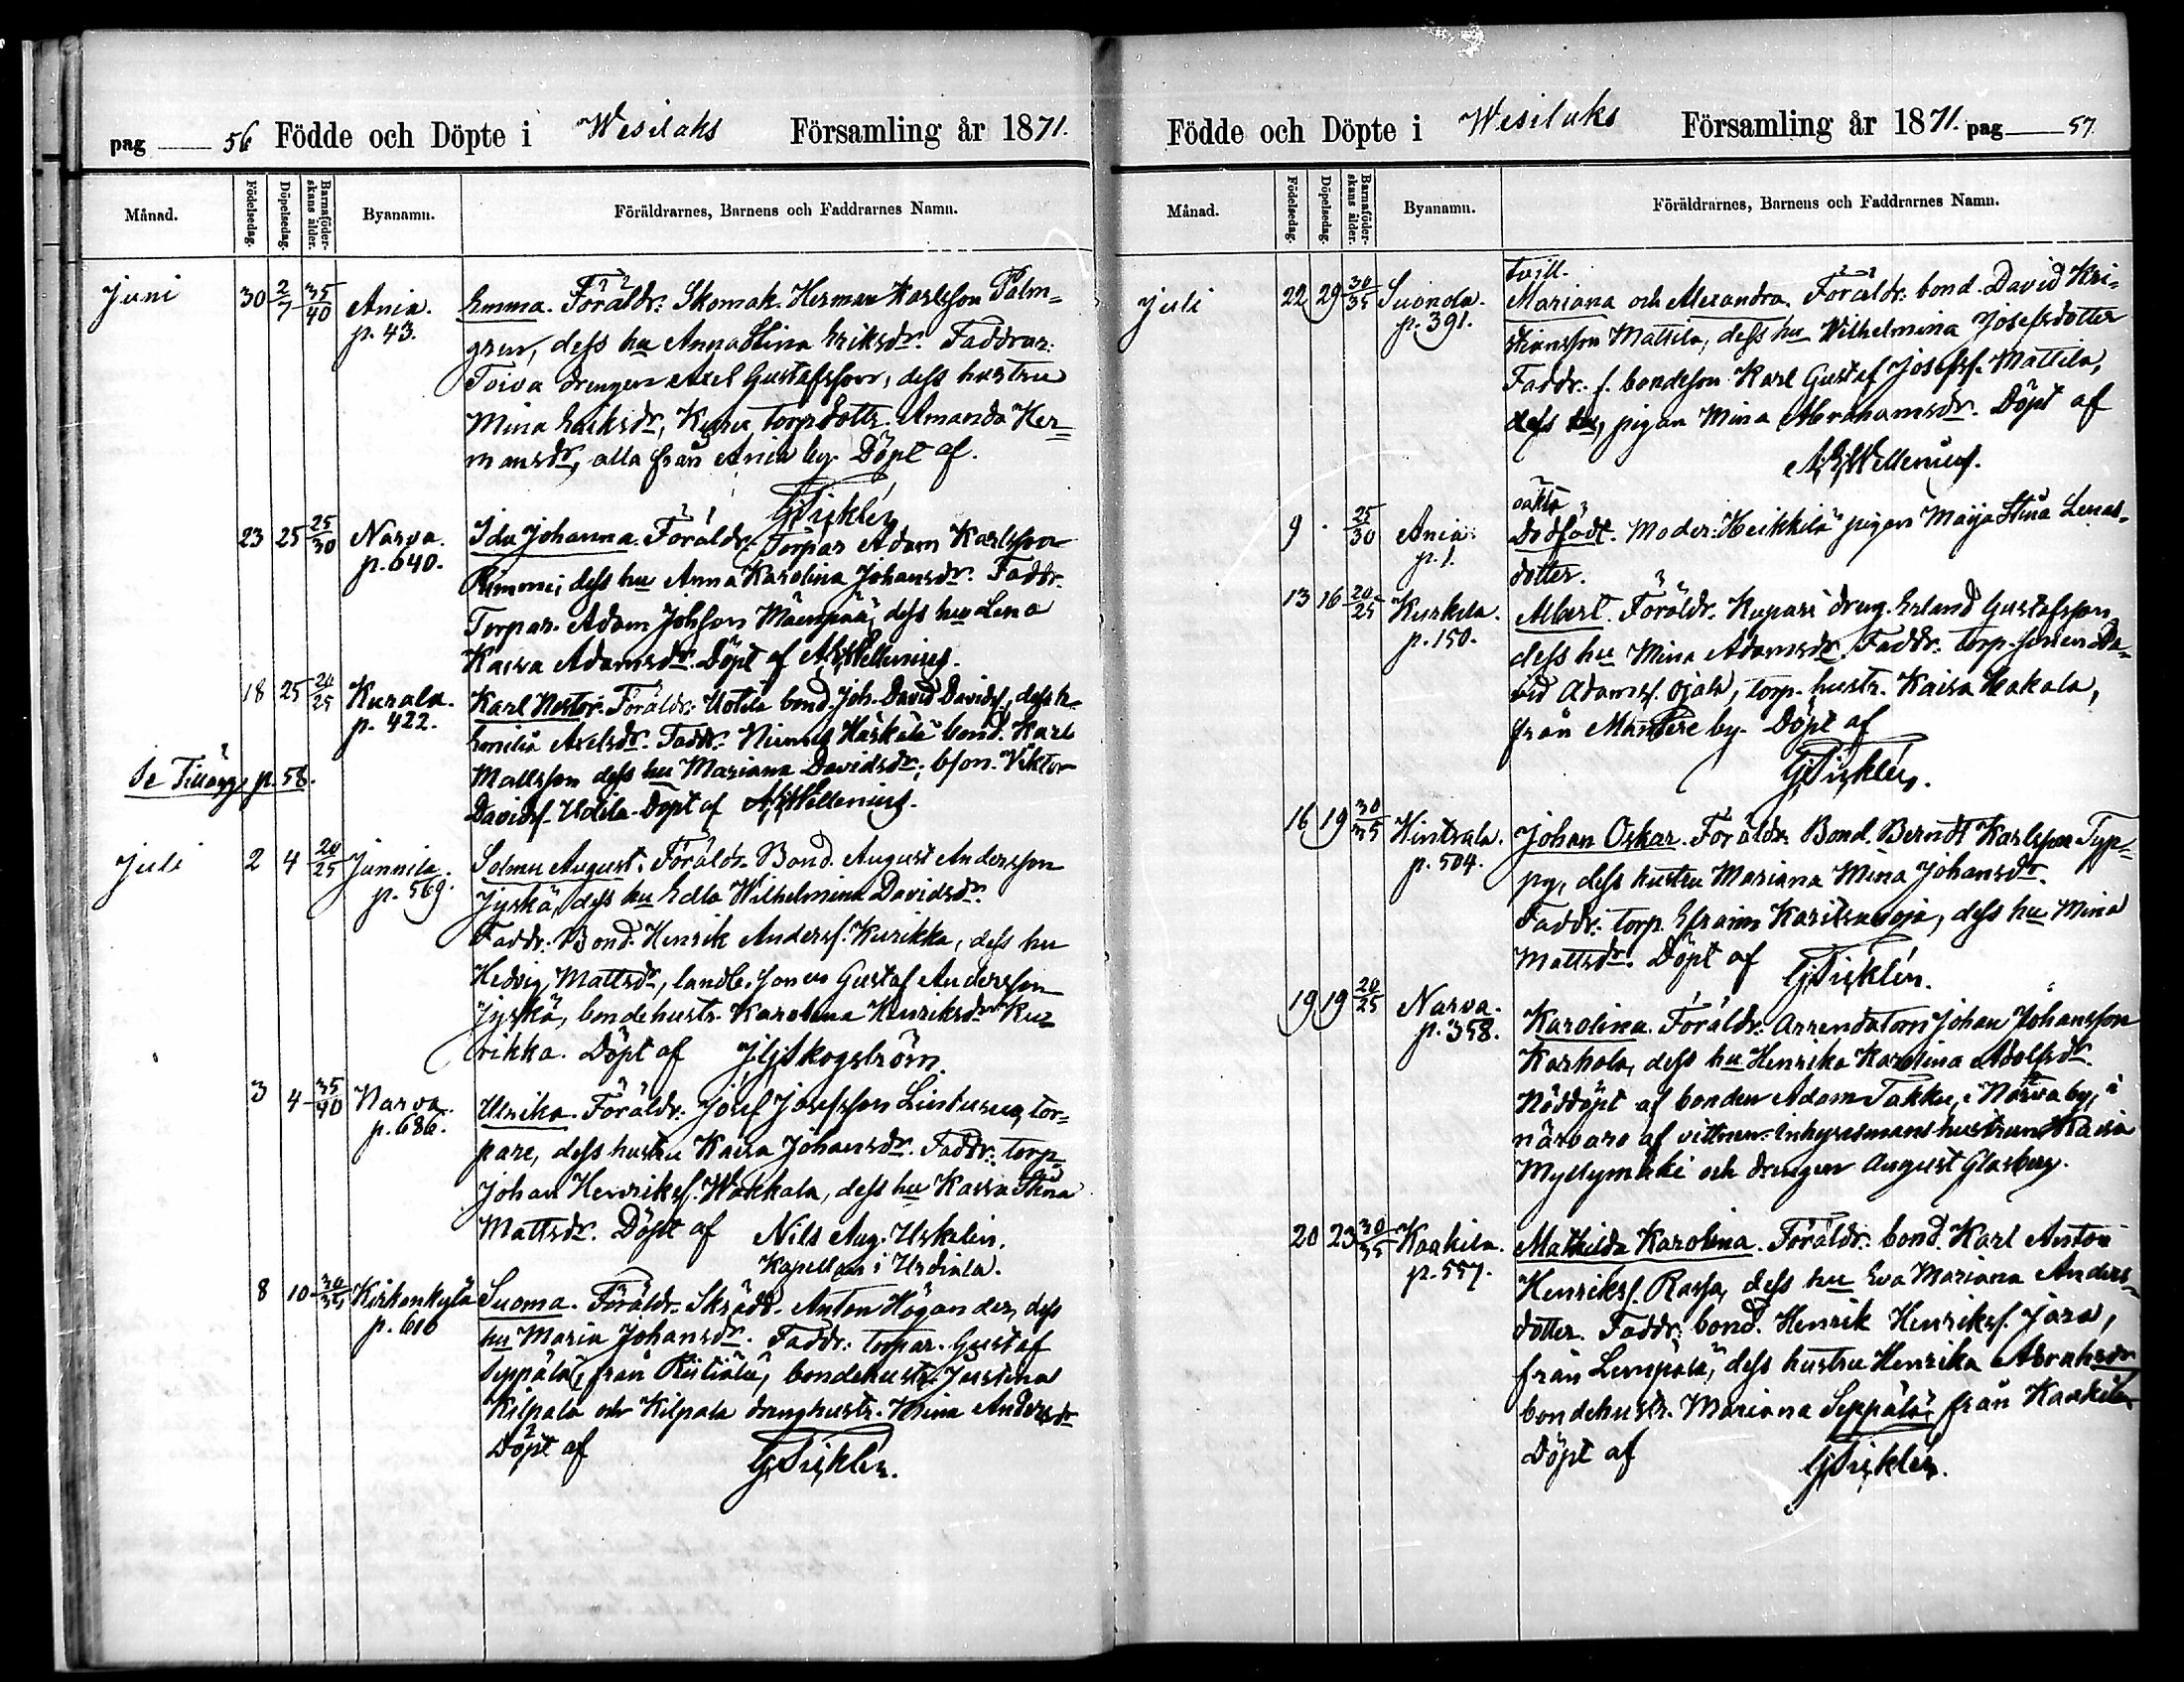 pag 56 Födde och Döpte i Wesilaks Församling år 1871.
Månad. Födelsedag. Döpelsedag. Barnaföderskans ålder. Byanamn. Föräldrarnes, Barnens och Faddrarnes Namn.
Juni 30 2/7 35/40 Ania. p. 43. Emma. Föräldr: Skomak. Herman Karlsson Palm=
gren, dess hu Anna Stina Eriksdr. Faddrar:
Toiva drengen Axel Gustafsson, dess hustru
Mina Eriksdr, torpdottr. Amanda Her=
mansdr, alla från Ania by. Döpt af
G Ticklén
23 25 25/30 Narva. p. 640. Ida Johanna. Föräldr: Torpar Adam Karlsson
dess hu Anna Karolina Johansdr. Faddr.
Torpar. Adam Johsson Mäenpää, dess hu Lena
Kaisa Adamsdr. Döpt af A. Wellenius.
18 25 20/25 Kurala. p. 422. Karl Nestor. Föräldr: Uotila bond. Joh. David Davidsf, dess h.
Emilia Axelsdr. Faddr. Härkälä bond. Karl
Mattsson dess hu Mariana Davidsdr, bson. Viktor
Se Tillägg p. 58.
Davidsf. Uotila. Döpt af A. Wellenius.
Juli 2 4 20/25 Junnila. p. 569. Solmu August. Föräldr. Bond. August Andersson
Jyskä, dess hu Edla Wilhelmina Davidsdr.
Faddr: Bond. Henrik Andersf. Kurikka, dess hu
Hedvig Mattsdr, landb. sonen Gustaf Andersson
Jyskä, bondehustr. Karolina Henriksdr Ku=
rikka. Döpt af J. Skogström.
3 4 35/40 Narva. p. 686. Ulrika. Föräldr: Josef Josefsson tor=
pare, dess hustru Kaisa Johansdr. Faddr: torp.
Johan Henriksf. Wakkala, dess hu Kaisa Stina
Mattsdr. Döpt af Nils Aug. Uskelin.
Kapellan i Urdiala.
8 10 30/35 Kirkonkylä p. 610 Suoma. Föräldr: Skrädd. Anton Högander, dess
hu Maria Johansdr. Faddr: torpar. Gustaf
Seppälä, från Ristiälä, bondehustr. Justina
Kilpala och Kilpala drenghustr. Mina Andersdr
Döpt af G Ticklén.
Födde och Döpte i Wesilaks Församling år 1871. pag 57
Månad. Födelsedag. Döpelsedag. Barnaföderskans ålder. Byanamn. Föräldrarnes, Barnens och Faddrarnes Namn.
tvill.
Juli 22 29 30/35 Suonola. p. 391. Mariana och Alexandra. Föräldr: bond. David Kri=
stiansson Mattila, dess hu Wilhelmina Josefsdotter
Faddr: f. bondeson Karl Gustaf Josefsf. Mattila,
dess hu, pigan Mina Abrahamsdr. Döpt af
A. Wellenius.
oäkta
9 . 25/30 Ania. p. 1. Dödfödt. Moder: Heikkilä pigan Maija Stina Lenas=
dotter.
13 16 20/25 Kurkela. p. 150. Albert. Föräldr. Kupari dreng. Erland Gustafsson,
dess hu Mina Adamsdr. Faddr: torp. sonen Da=
vid Adamsf. Ojala, torp. hustr. Kaisa Hakala,
från Mantere by. Döpt af
G Ticklén.
16 19 30/35 Hintsala. p. 504. Johan Oskar. Föräldr. Bond. Berndt Karlsson Typ=
py, dess hustru Mariana Mina Johansdr.
Faddr: torp. Efraim dess hu Mina
Mattsdr. Döpt af G Ticklén.
19 19 20/25 Narva. p. 358. Karolina. Föräldr: Arrendatorn Johan Johansson
Karhola, dess hu Henrika Karolina Adolfsdr.
Nöddöpt af bonden Adam Takku, i Narva by, i
närvaro af vittnen: inhysesmanshustrun Maria
Myllymäki och drengen August Glasberg.
20 23 30/35 Kaakila. p. 557. Mathilda Karolina. Föräldr: bond. Karl Anton
Henriksf. Rassa, dess hu Eva Mariana Anders=
dotter. Faddr: bond. Henrik Henriksf. Jara,
från Lempälä, dess hustru Henrika Abrahsdr
bondehustr. Mariana Seppälä, från Kaakila
Döpt af G Ticklén.